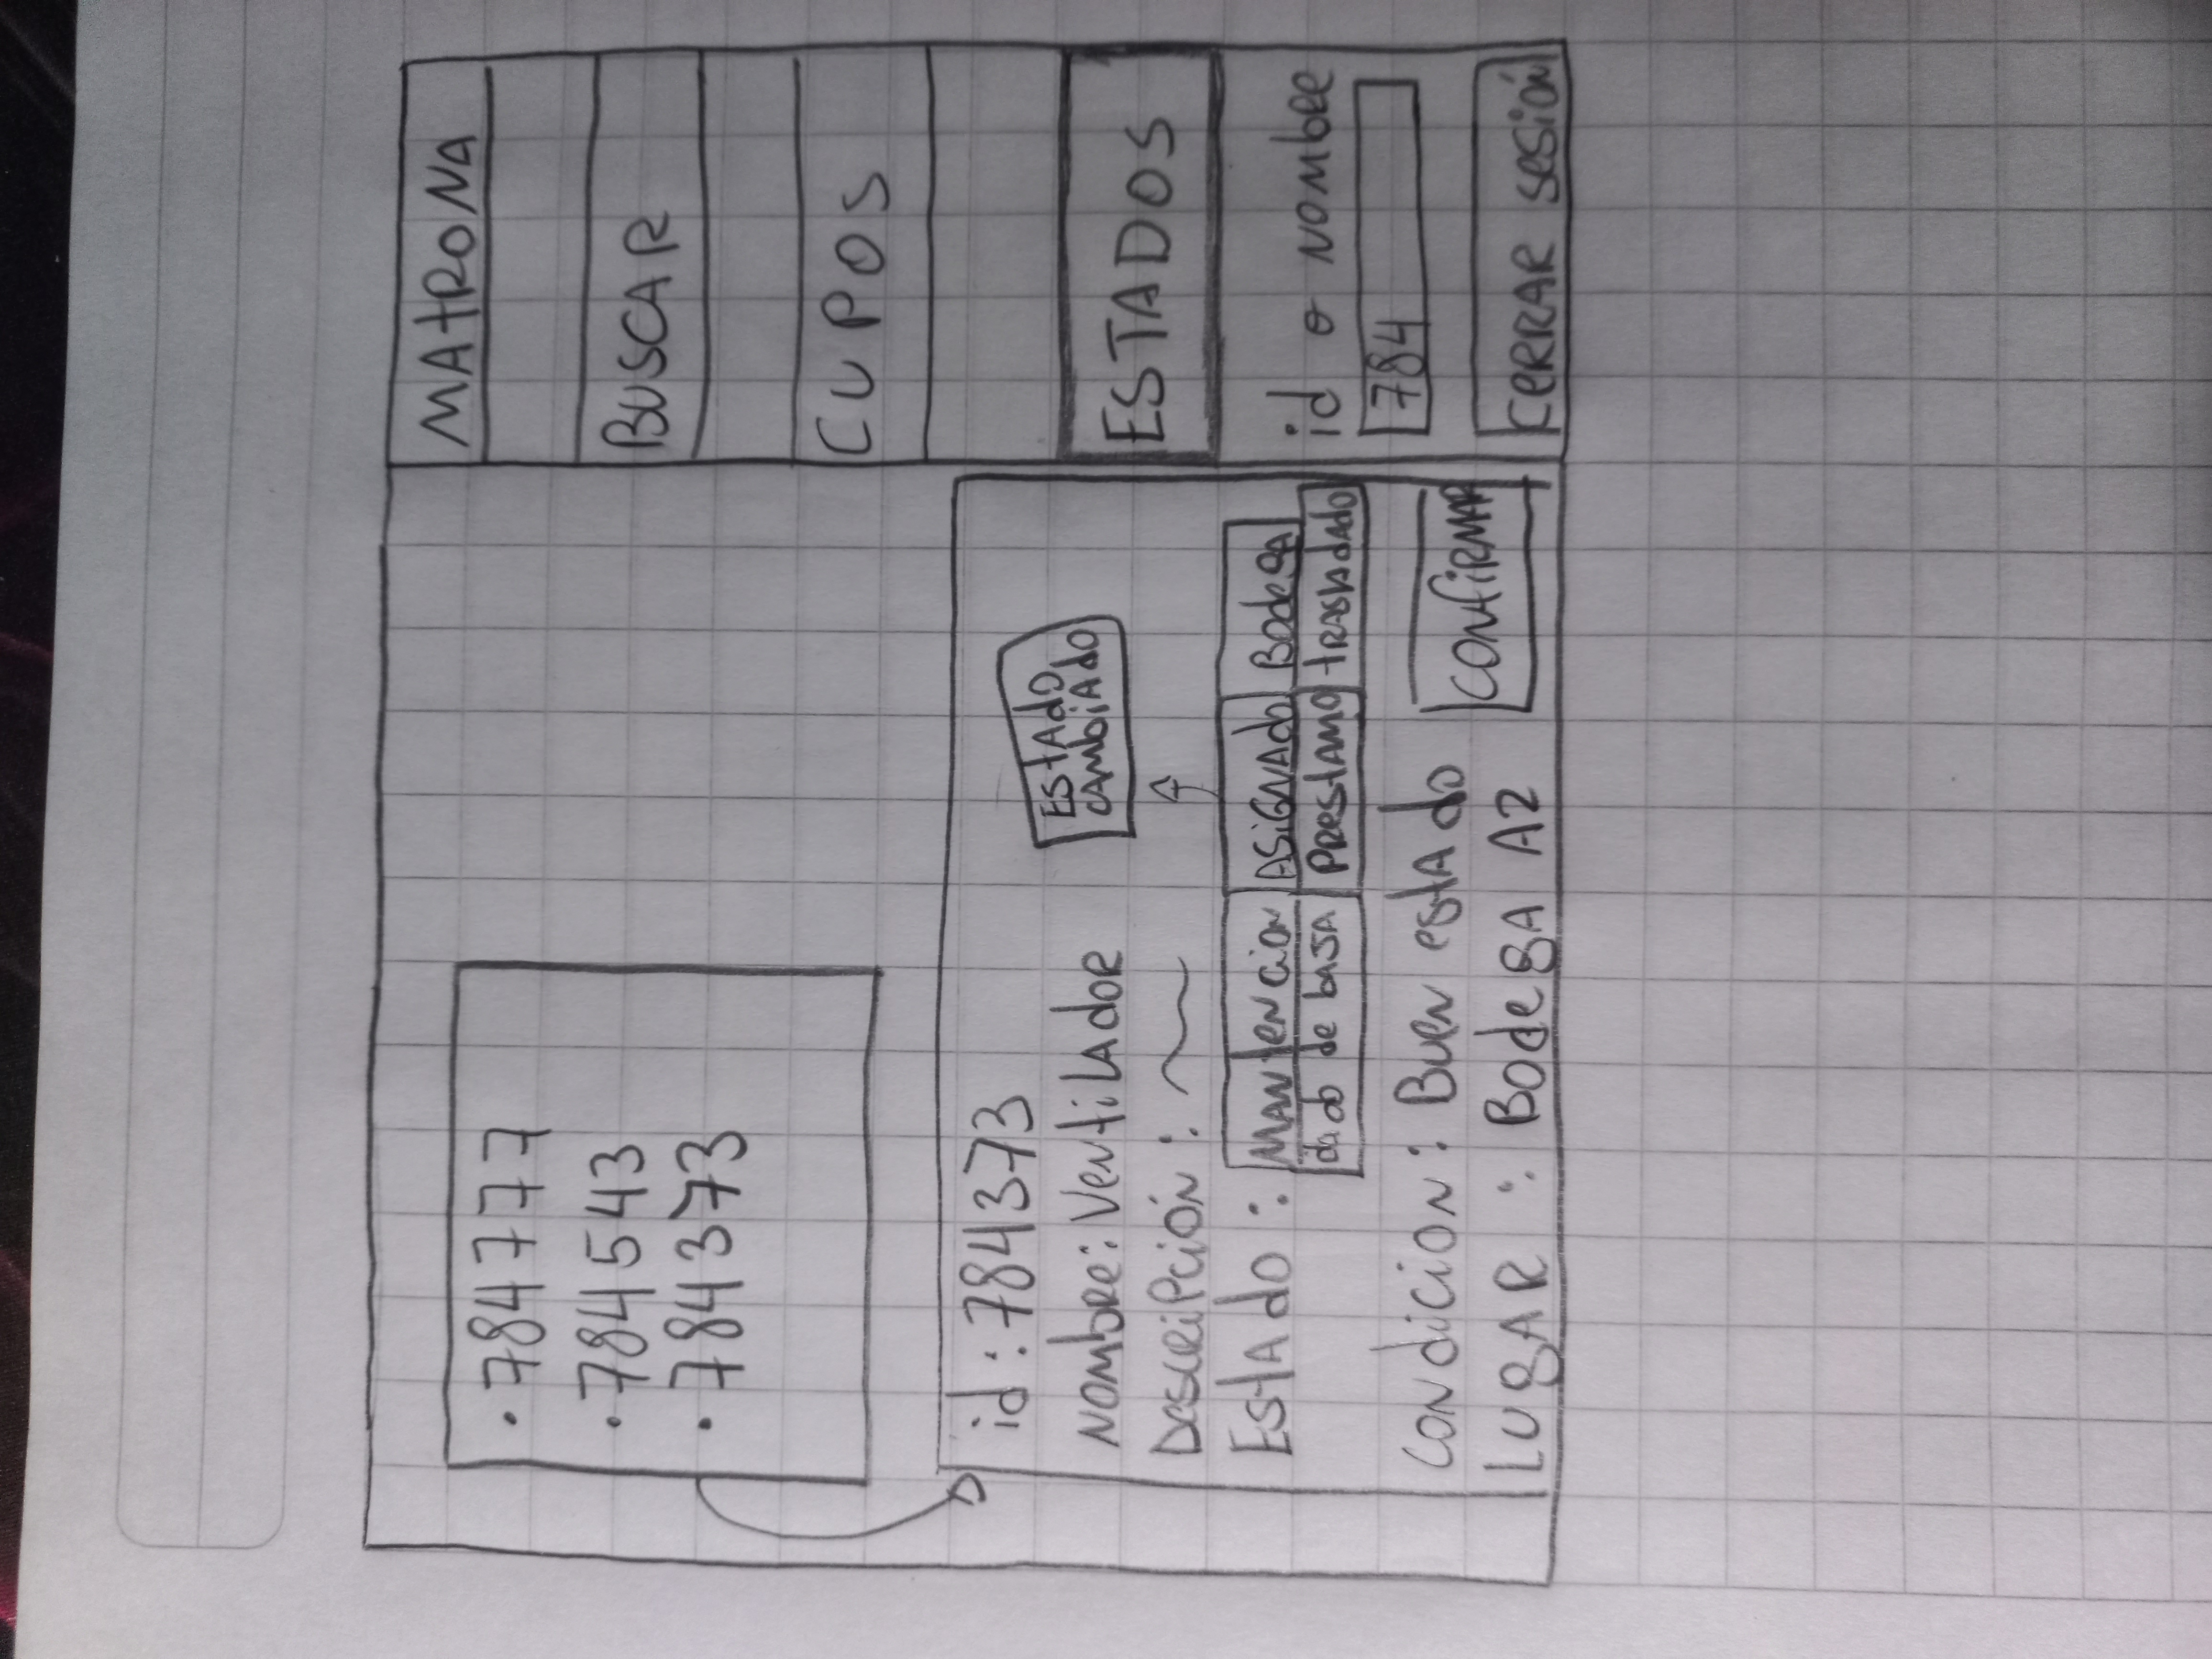 • 784777
• 784543
• 784373
id : 784373
Nombre: Ventilador
Descripción :
Estado : Mantencion Asignado Bodega
dado de baja Prestamo trasladado
Estado
cambiado
Condicion : Buen estado
Lugar : Bodega A2
Confirmar
MAtRONA
BUSCAR
CUPOS
ESTADOS
id o nombre
784
Cerrar sesión